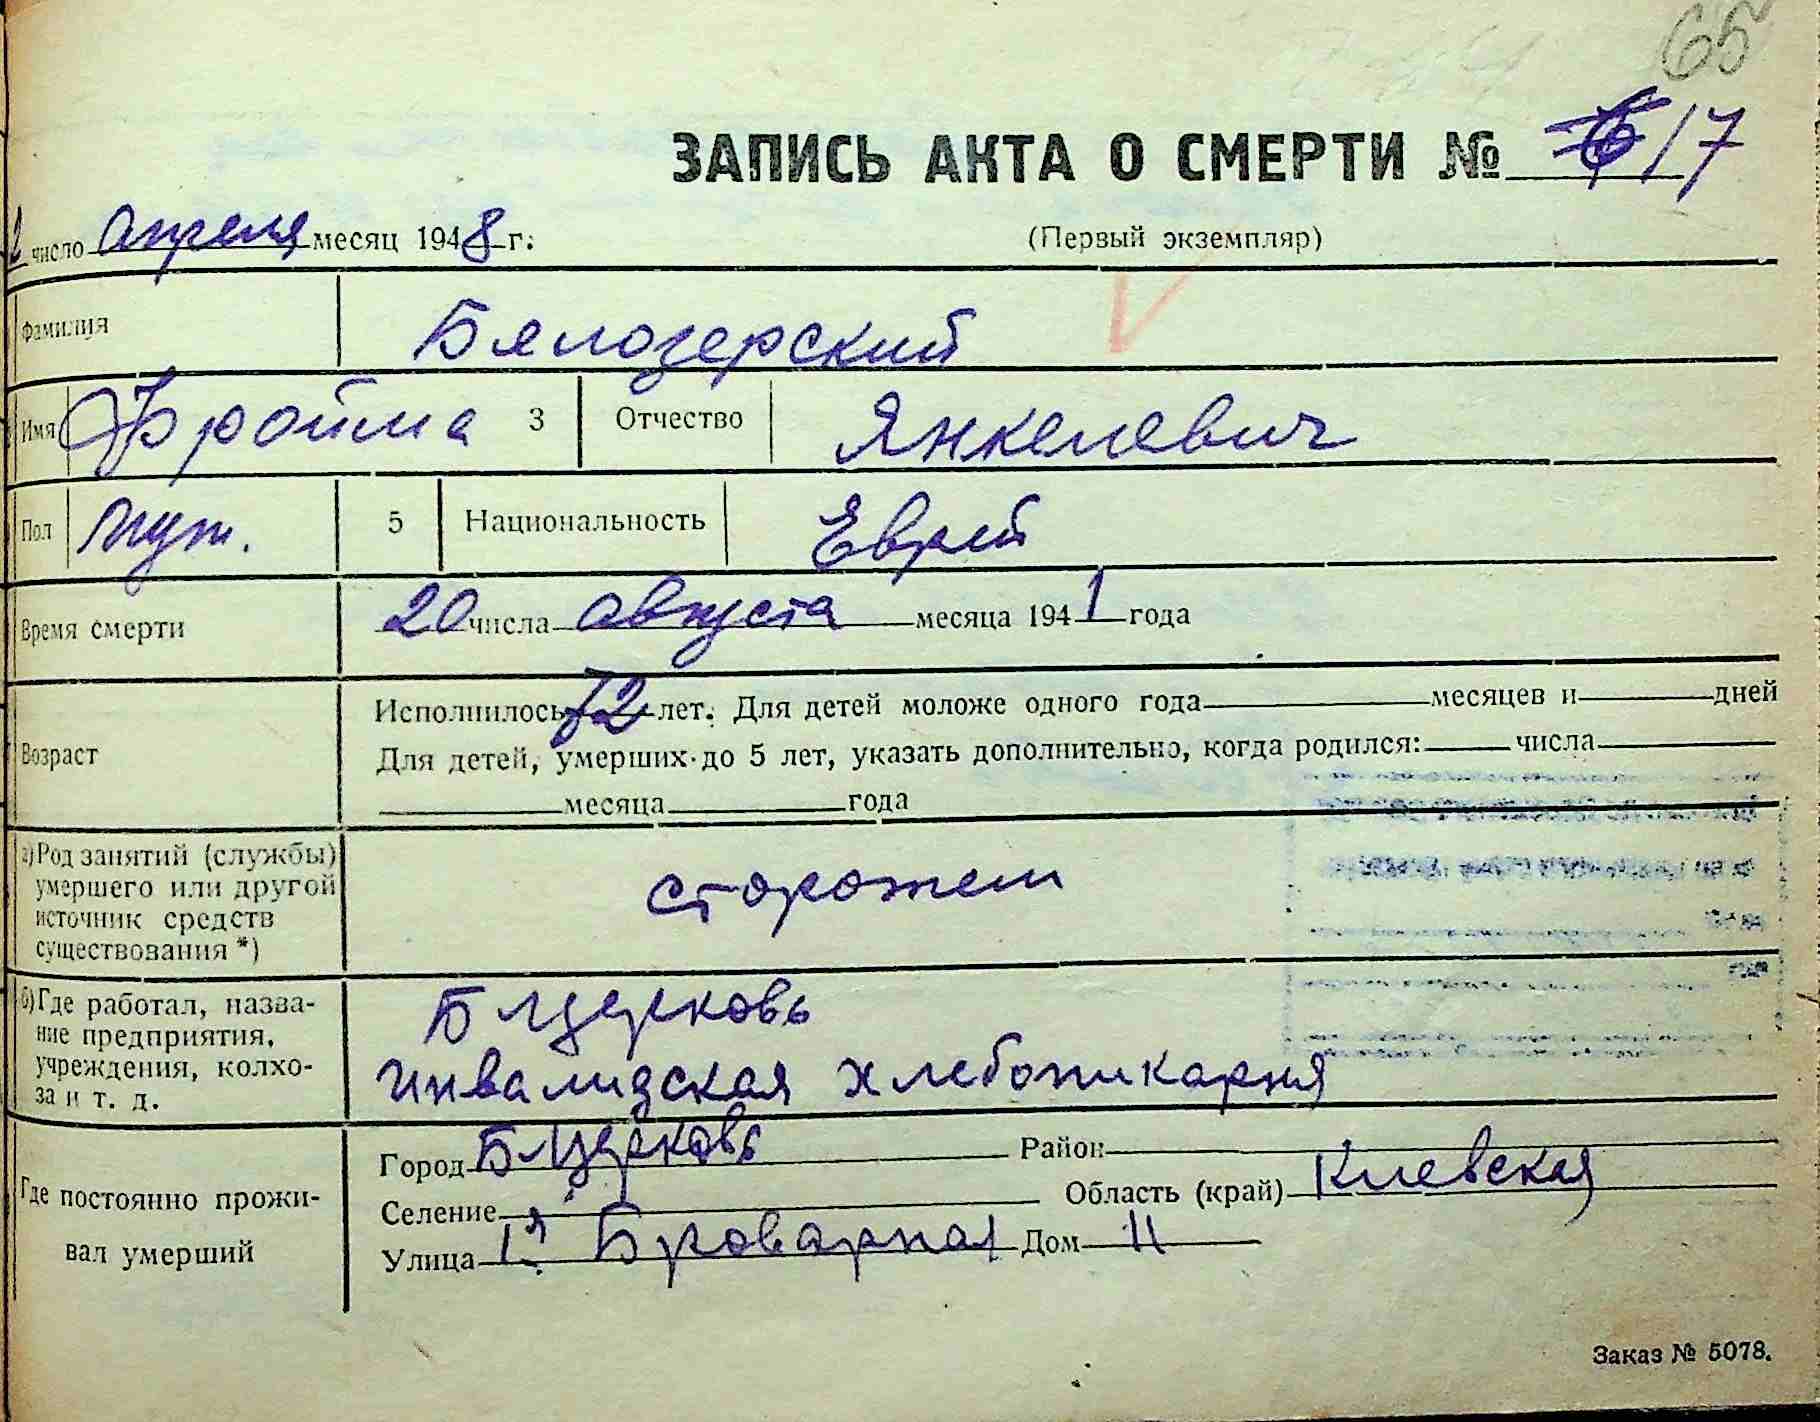 65
ЗАПИСЬ АКТА О СМЕРТИ № 6 17
2 число апреля месяц 1948 г. (Первый экземпляр)
Фамилия Бялозерский
Имя Фройма 3 Отчество Янкелевич
Пол муж. 5 Национальность Еврей
Время смерти 20 числа августа месяца 1941 года
Исполнилось 72 лет. Для детей моложе одного года месяцев и дней
Возраст Для детей, умерших до 5 лет, указать дополнительно, когда родился: числа
месяца года
а) Род занятий (службы)
умершего или другой
источник средств
существования *)
сторожем
б) Где работал, назва-
ние предприятия,
учреждения, колхо-
за и т. д.
Б Церковь
инвалидская хлебопикарня
Где постоянно прожи-
вал умерший
Город Б Церковь Район
Селение Область (край) Киевская
Улица 1я Броварная Дом 11
Заказ № 5078.